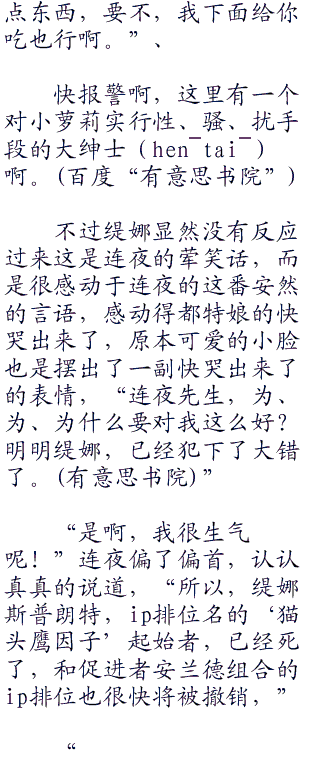 点东西，要不，我下面给你
吃也行啊。”、
快报警啊，这里有一个
对小萝莉实行性、骚、扰手
段的大绅士（hen¯tai¯）
啊。(百度“有意思书院”)
不过缇娜显然没有反应
过来这是连夜的荤笑话，而
是很感动于连夜的这番安然
的言语，感动得都特娘的快
哭出来了，原本可爱的小脸
也是摆出了一副快哭出来了
的表情，“连夜先生，为、
为、为什么要对我这么好？
明明缇娜，已经犯下了大错
了。(有意思书院)”
“是啊，我很生气
呢！”连夜偏了偏首，认认
真真的说道，“所以，缇娜
斯普朗特，ip排位名的‘猫
头鹰因子’起始者，已经死
了，和促进者安兰德组合的
ip排位也很快将被撤销，”
“